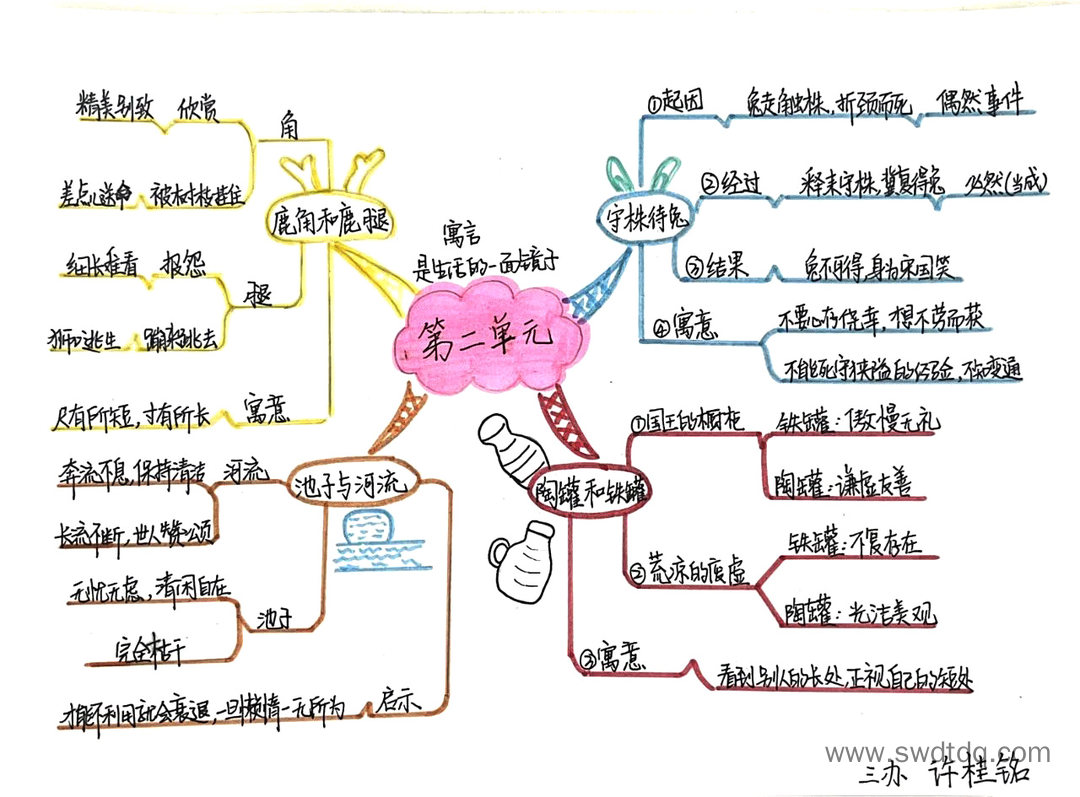 寓言
是生活的一面镜子
第二单元
守株待兔
①起因
兔走触株，折颈而死
偶然事件
②经过
释耒守株，冀复得兔
必然(当成)
③结果
兔不可得，身为宋国笑
④寓意
不要心存侥幸，想不劳而获
不能死守狭隘的经验，不知变通
陶罐和铁罐
①国王的橱柜
铁罐：傲慢无礼
陶罐：谦虚友善
②荒凉的废虚
铁罐：不复存在
陶罐：光洁美观
③寓意
看到别人的长处，正视自己的短处
鹿角和鹿腿
角
精美别致 欣赏
差点儿送命 被树枝挂住
腿
细长难看 抱怨
狮口逃生 蹦跳逃去
寓意
尺有所短，寸有所长
池子与河流
河流
奔流不息，保持清洁
长流不断，世人赞颂
池子
无忧无虑，清闲自在
完全枯干
启示
才能不利用就会衰退，一旦 一无所为
www.swdtdq.com
三办 许桂铭